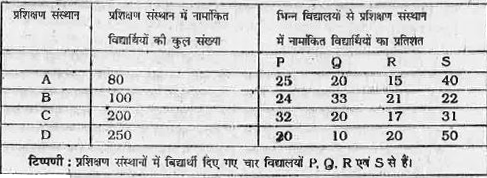 प्रशिक्षण संस्थान प्रशिक्षण संस्थान में नामांकित भिन्न विद्यालयों से प्रशिक्षण संस्थान
विद्यार्थियों की कुल संख्या में नामांकित विद्यार्थियों का प्रतिशत
P Q R S
A 80 25 20 15 40
B 100 24 33 21 22
C 200 32 20 17 31
D 250 20 10 20 50
टिप्पणी : प्रशिक्षण संस्थानों में विद्यार्थी दिए गए चार विद्यालयों P, Q, R एवं S से हैं।